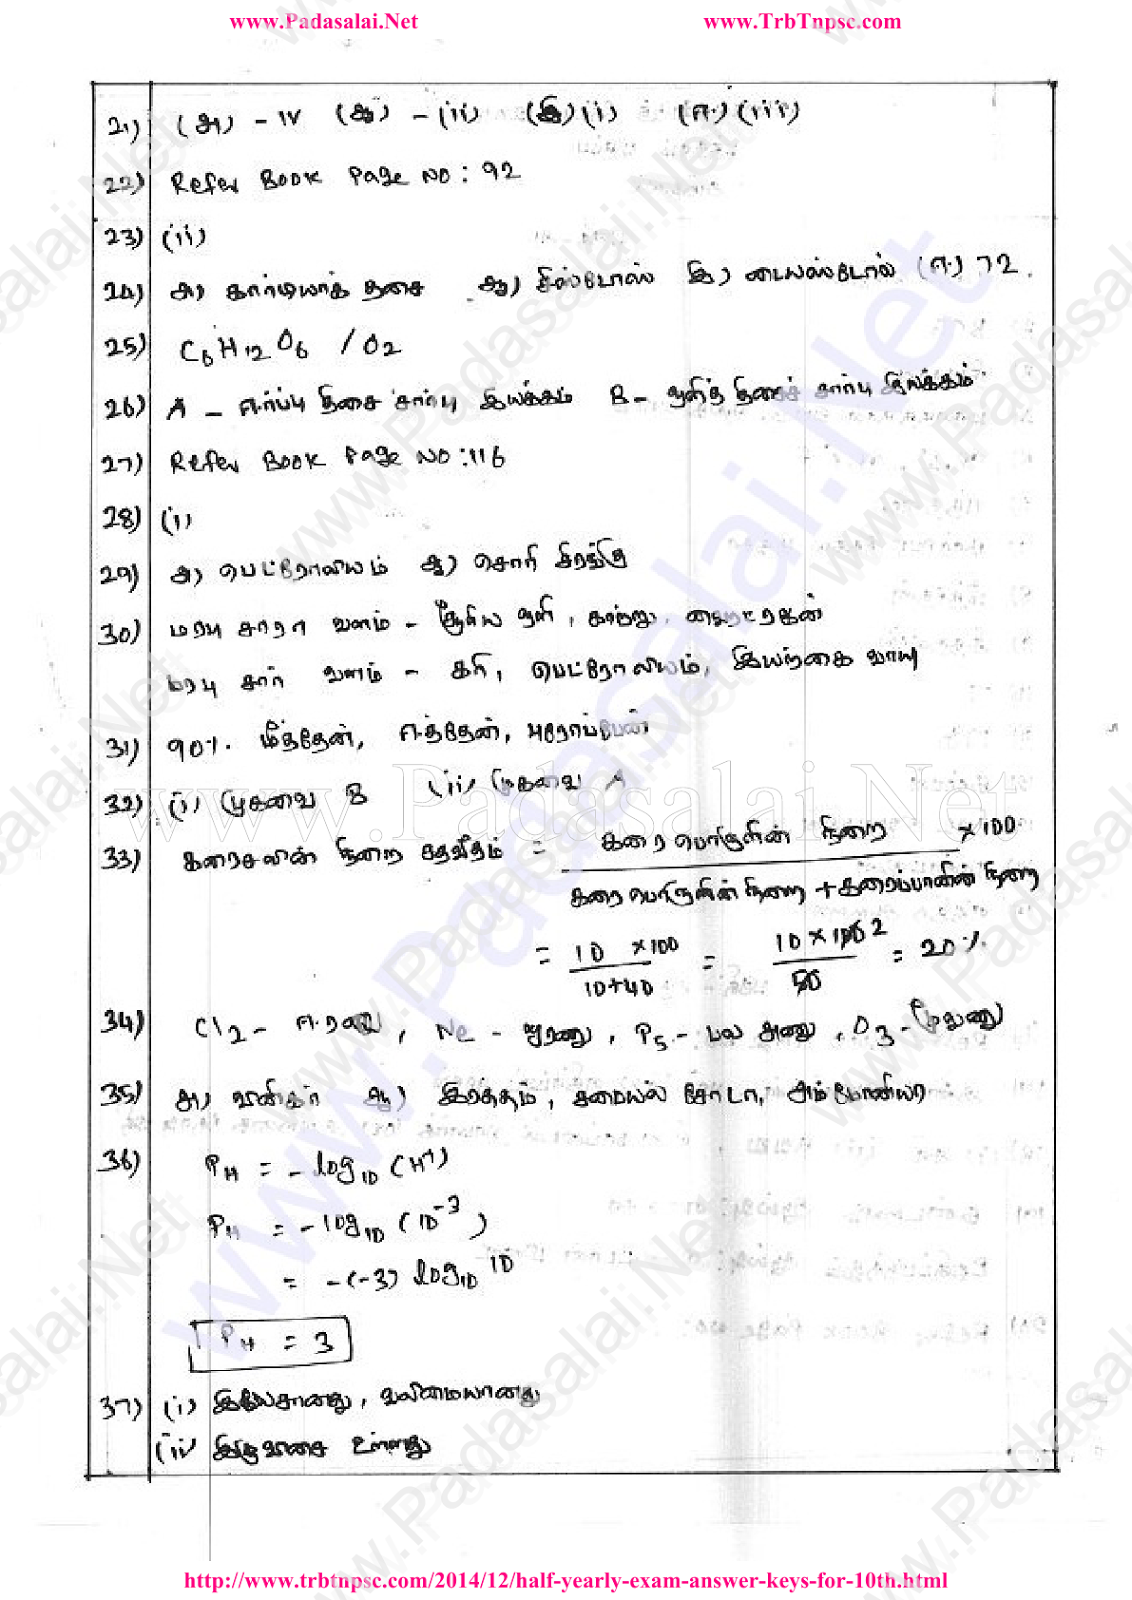 www.Padasalai.Net www.TrbTnpsc.com
21) (அ) - iv (ஆ) - (ii) (இ) (i) (ஈ) (iii)
22) Refer Book Page No : 92
23) (ii)
24) அ) கார்டியாக் தசை ஆ) சிஸ்டோல் இ) டையஸ்டோல் (ஈ) 72.
25) C6H12O6 / O2
26) A - ஈர்ப்பு திசை சார்பு இயக்கம் B - ஒளித் திசைச் சார்பு இயக்கம்
27) Refer Book Page No : 116
28) (i)
29) அ) பெட்ரோலியம் ஆ) சொறி சிரங்கு
30) மரபு சாரா வளம் - சூரிய ஒளி, காற்று, ஹைட்ரஜன்
மரபு சார் வளம் - கரி, பெட்ரோலியம், இயற்கை வாயு
31) 90%. மீத்தேன், ஈத்தேன், புரோப்பேன்
32) (i) முகவை B (ii) முகவை A
33) கரைசலின் நிறை சதவீதம் = கரைபொருளின் நிறை × 100
கரைபொருளின் நிறை + கரைப்பானின் நிறை
= 10 × 100 / 10+40 = 10 × 100 2 / 50 = 20%.
34) Cl2 - ஈரணு, Ne - ஓரணு, P5 - பல அணு, O3 - மூவணு
35) அ) வினிகர் ஆ) இரத்தம், சமையல் சோடா, அம்மோனியா
36) PH = - log10 (H+)
PH = - log10 (10-3)
= - (-3) log10 10
PH = 3
37) (i) இலேசானது, வலிமையானது
(ii) இருவாசை உள்ளது
www.Padasalai.Net
http://www.trbtnpsc.com/2014/12/half-yearly-exam-answer-keys-for-10th.html